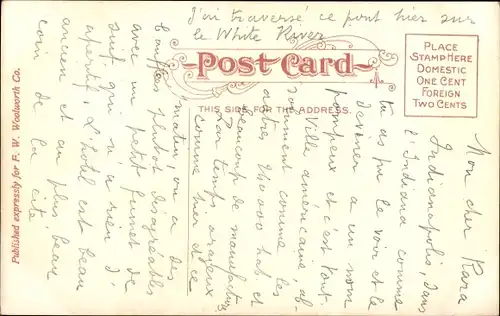 J'ai traversé ce pont hier sur
le White River
Post Card
THIS SIDE FOR THE ADDRESS.
PLACE
STAMP HERE
DOMESTIC
ONE CENT
FOREIGN
TWO CENTS
Published expressly for F. W. Woolworth Co.
Mon cher Papa
Indianapolis, dans
l'Indiana comme
tu as pu le voir et le
deviner a un nom
pompeux et c'est tout.
Ville américaine, ab-
solument comme les
autres 240000 hab et
beaucoup de manufactures
Par temps orageux
comme hier et ce
matin, on a des
bouffées plutot désagréables
avec un petit fumet de
suif qui n'a rien d'
apéritif. L'hôtel est beau
ancien et au plus beau
coin de la cité